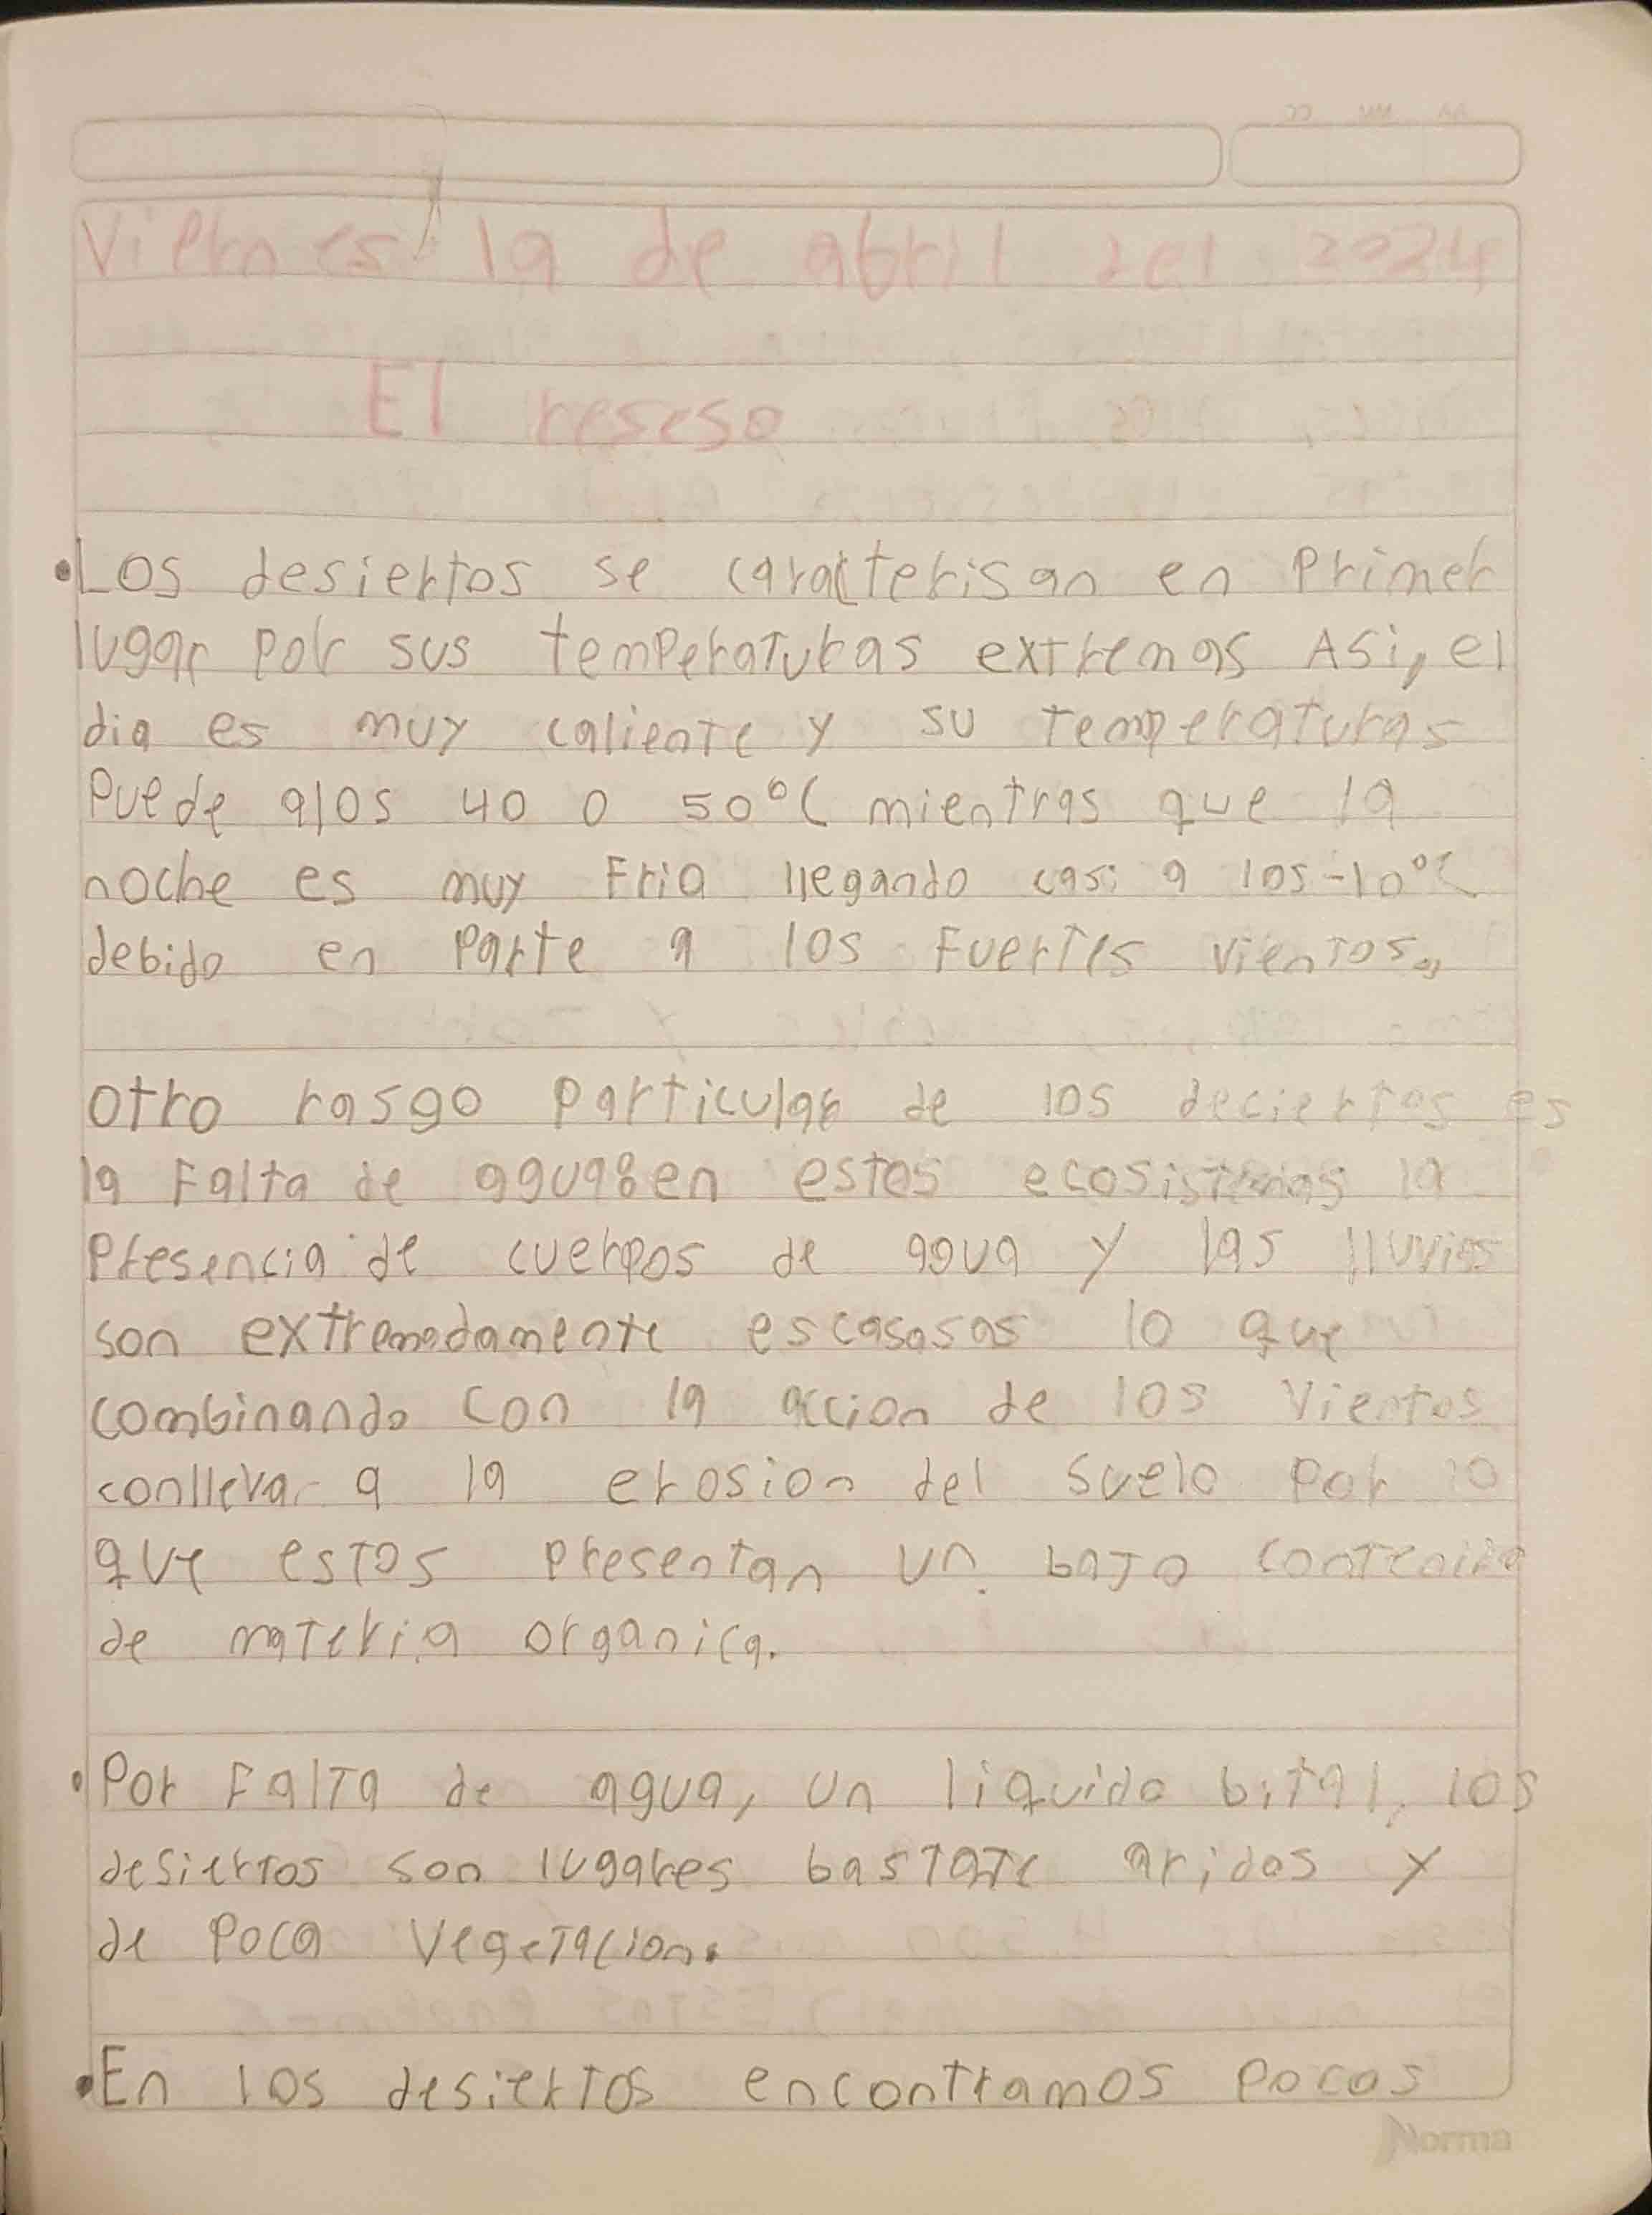 Viernes 19 de abril del 2024
El reseso
•Los desiertos se caracterisan en Primer
lugar por sus temperaturas extremas Asi, el
dia es muy caliente y su temperaturas
Puede alos 40 o 50°C mientras que la
noche es muy Fria llegando casi a los -10°C
debido en Parte a los Fuertes vientos.
otro rasgo particular de los deciertos es
la Falta de agua en estos ecosistemas la
Presencia de cuerpos de agua y las lluvias
son extremadamente escasasas lo que
combinando con la accion de los Vientos
conllevar a la erosion del suelo por lo
que estos presentan un bajo contenido
de materia organica.
•Por Falta de agua, un liquido bital, los
desiertos son lugares bastate aridos y
de Poca Vegetacion.
•En los desiertos encontramos Pocas
Norma